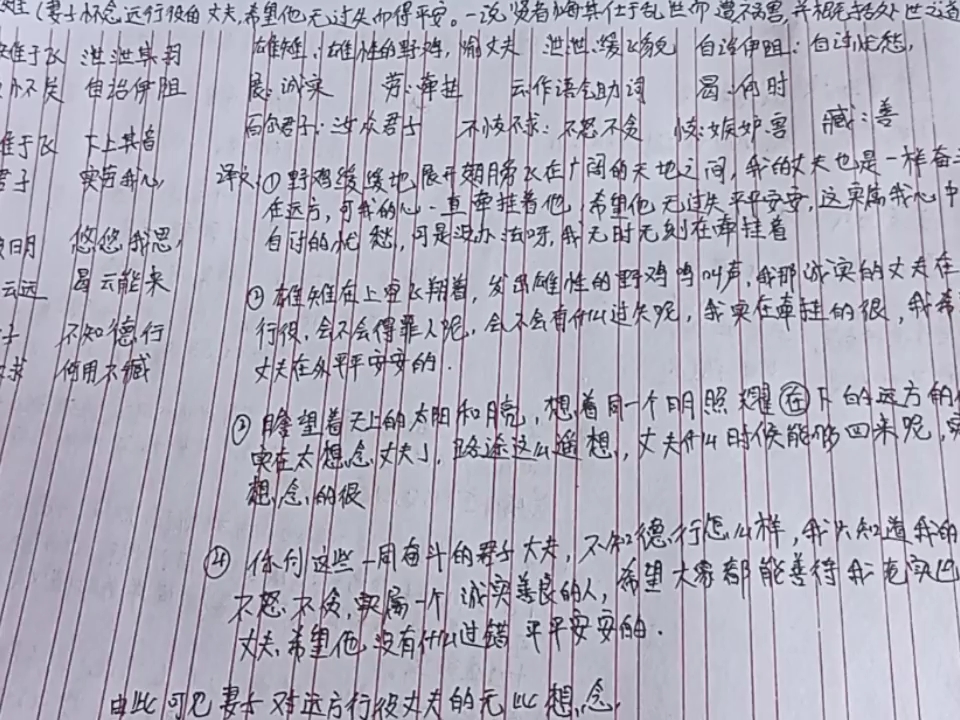 雉(妻子怀念远行役的丈夫,希望他无过失而得平安。一说贤者悔其仕于乱世而遭祸害,并相勉善处世之道
雉于飞 泄泄其羽 雄雉:雄性的野鸡,喻丈夫 泄泄:缓飞貌 自诒伊阻:自讨忧愁,
怀矣 自诒伊阻 展:诚实 劳:牵挂 云:作语气助词 曷:何时
百尔君子:汝众君子 不忮不求:不怒不贪 忮:嫉妒.害 臧:善
雉于飞 下上其音
君子 实劳我心, 译文:①野鸡缓缓地展开翅膀飞在广阔的天地之间,我的丈夫也是一样奋斗
在远方,可我的心一直牵挂着他,希望他无过失平平安安,这实属我心中
日月 悠悠我思, 自讨的忧愁,可是没办法呀,我无时无刻在牵挂着
云远 曷云能来 ②雄雉在上空飞翔着,发出雄性的野鸡鸣叫声,我那诚实的丈夫在
子 不知德行 行役,会不会得罪人呢,会不会有什么过失呢,我实在牵挂的很,我希
求 何用不臧 丈夫在外平平安安的.
③瞻望着天上的太阳和月亮,想着同一个日月照耀在下的远方的
实在太想念丈夫了,路途这么遥想,丈夫什么时候能够回来呢,实
想念的很
④你们这些一同奋斗的君子大夫,不知德行怎么样,我只知道我的
不怒不贪,实属一个诚实善良的人,希望大家都能善待我
丈夫,希望他没有什么过错平平安安的.
由此可见妻子对远方行役丈夫的无比想念.